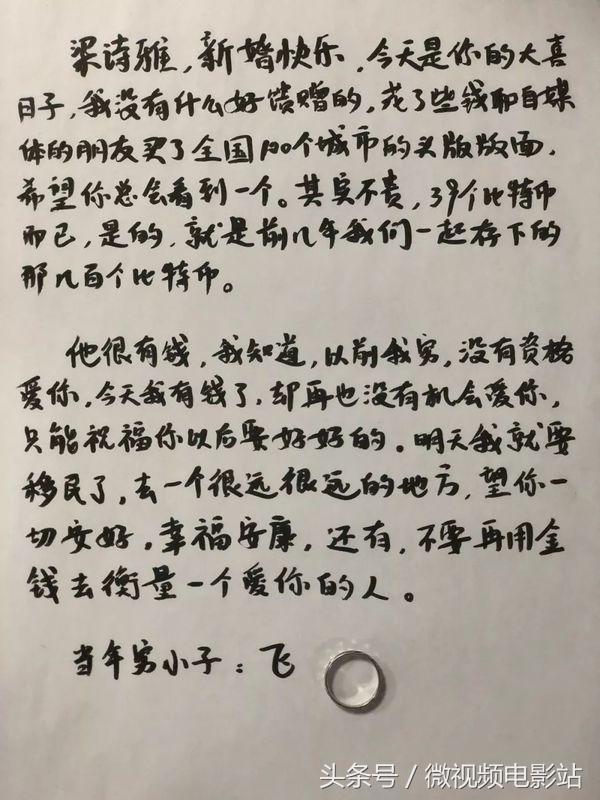 梁诗雅，新婚快乐，今天是你的大喜
日子，我没有什么好馈赠的，花了些钱和自媒
体的朋友买了全国100个城市的头版版面，
希望你总会看到一个。其实不贵，39个比特币
而已，是的，就是前几年我们一起存下的
那几百个比特币。
他很有钱，我知道，以前我穷，没有资格
爱你，今天我有钱了，却再也没有机会爱你，
只能祝福你以后要好好的。明天我就要
移民了，去一个很远很远的地方，望你一
切安好，幸福安康，还有，不要再用金
钱去衡量一个爱你的人。
当年穷小子：飞
头条号／微视频电影站